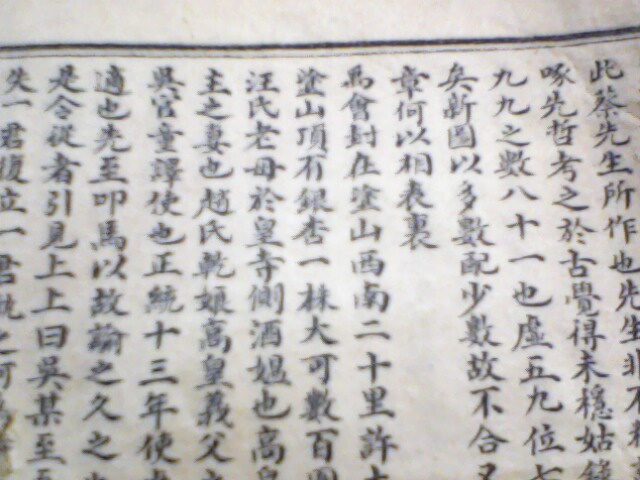 此蔡先生所作也先生非不
啄先哲考之於古覺得未穩姑錄
九九之數八十一也虛五九位七
矣新圖以多數配少數故不合又
章何以相表裏
為會封在塗山西南二十里許
塗山頂有銀杏一株大可數百圍
汪氏老母於皇寺側酒媼也高皇
主之妻也趙氏乾娘高皇義父
吳官童譯使也正統十三年使
適也先至叩馬以故諭之久之
是令從者引見上上曰吳某至
失一君復立一君